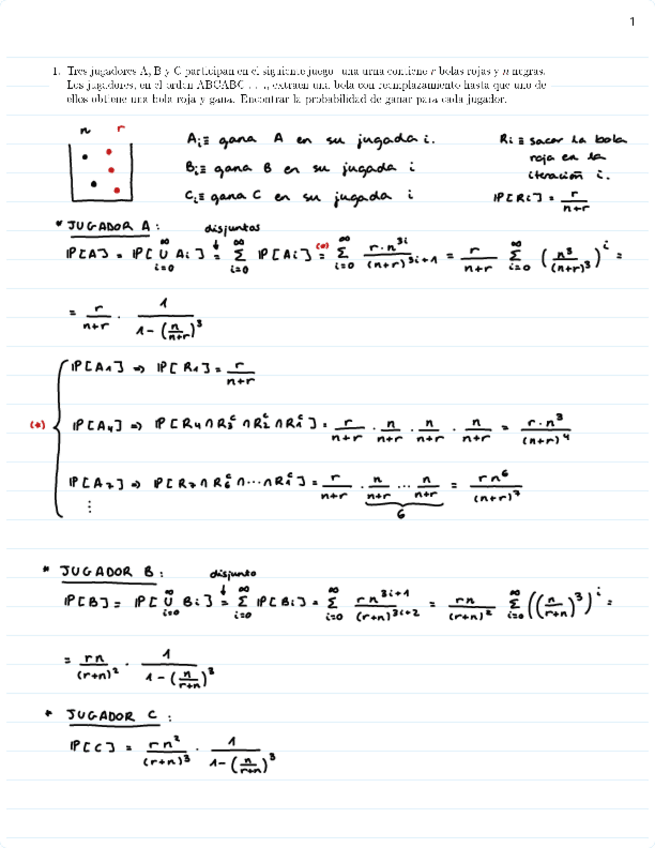 1
1. Tres jugadores A, B y C participan en el siguiente juego: una urna contiene r bolas rojas y n negras.
Los jugadores, en el orden ABCABC . . ., extraen una bola con reemplazamiento hasta que uno de
ellos obtiene una bola roja y gana. Encontrar la probabilidad de ganar para cada jugador.
n r
Ai ≡ gana A en su jugada i.
Bi ≡ gana B en su jugada i
Ci ≡ gana C en su jugada i
Ri ≡ sacar la bola
roja en la
iteración i.
IP[Ri] = r/(n+r)
* JUGADOR A :
disjuntos
IP[A] = IP[ ∪_{i=0}^{∞} Ai ] = Σ_{i=0}^{∞} IP[Ai] =^{(*)} Σ_{i=0}^{∞} r·n^{3i}/(n+r)^{3i+1} = r/(n+r) Σ_{i=0}^{∞} (n^3/(n+r)^3)^i =
= r/(n+r) · 1/(1-(n/(n+r))^3)
(*)
IP[A1] => IP[R1] = r/(n+r)
IP[A4] => IP[R4 ∩ R3^c ∩ R2^c ∩ R1^c] = r/(n+r) · n/(n+r) · n/(n+r) · n/(n+r) = r·n^3/(n+r)^4
IP[A7] => IP[R7 ∩ R6^c ∩ ··· ∩ R1^c] = r/(n+r) · n/(n+r) ··· n/(n+r) = rn^6/(n+r)^7
6
⋮
* JUGADOR B :
disjunto
IP[B] = IP[ ∪_{i=0}^{∞} Bi ] = Σ_{i=0}^{∞} IP[Bi] = Σ_{i=0}^{∞} rn^{3i+1}/(r+n)^{3i+2} = rn/(r+n)^2 Σ_{i=0}^{∞} ((n/(r+n))^3)^i =
= rn/(r+n)^2 · 1/(1-(n/(r+n))^3)
* JUGADOR C :
IP[C] = rn^2/(r+n)^3 · 1/(1-(n/(r+n))^3)